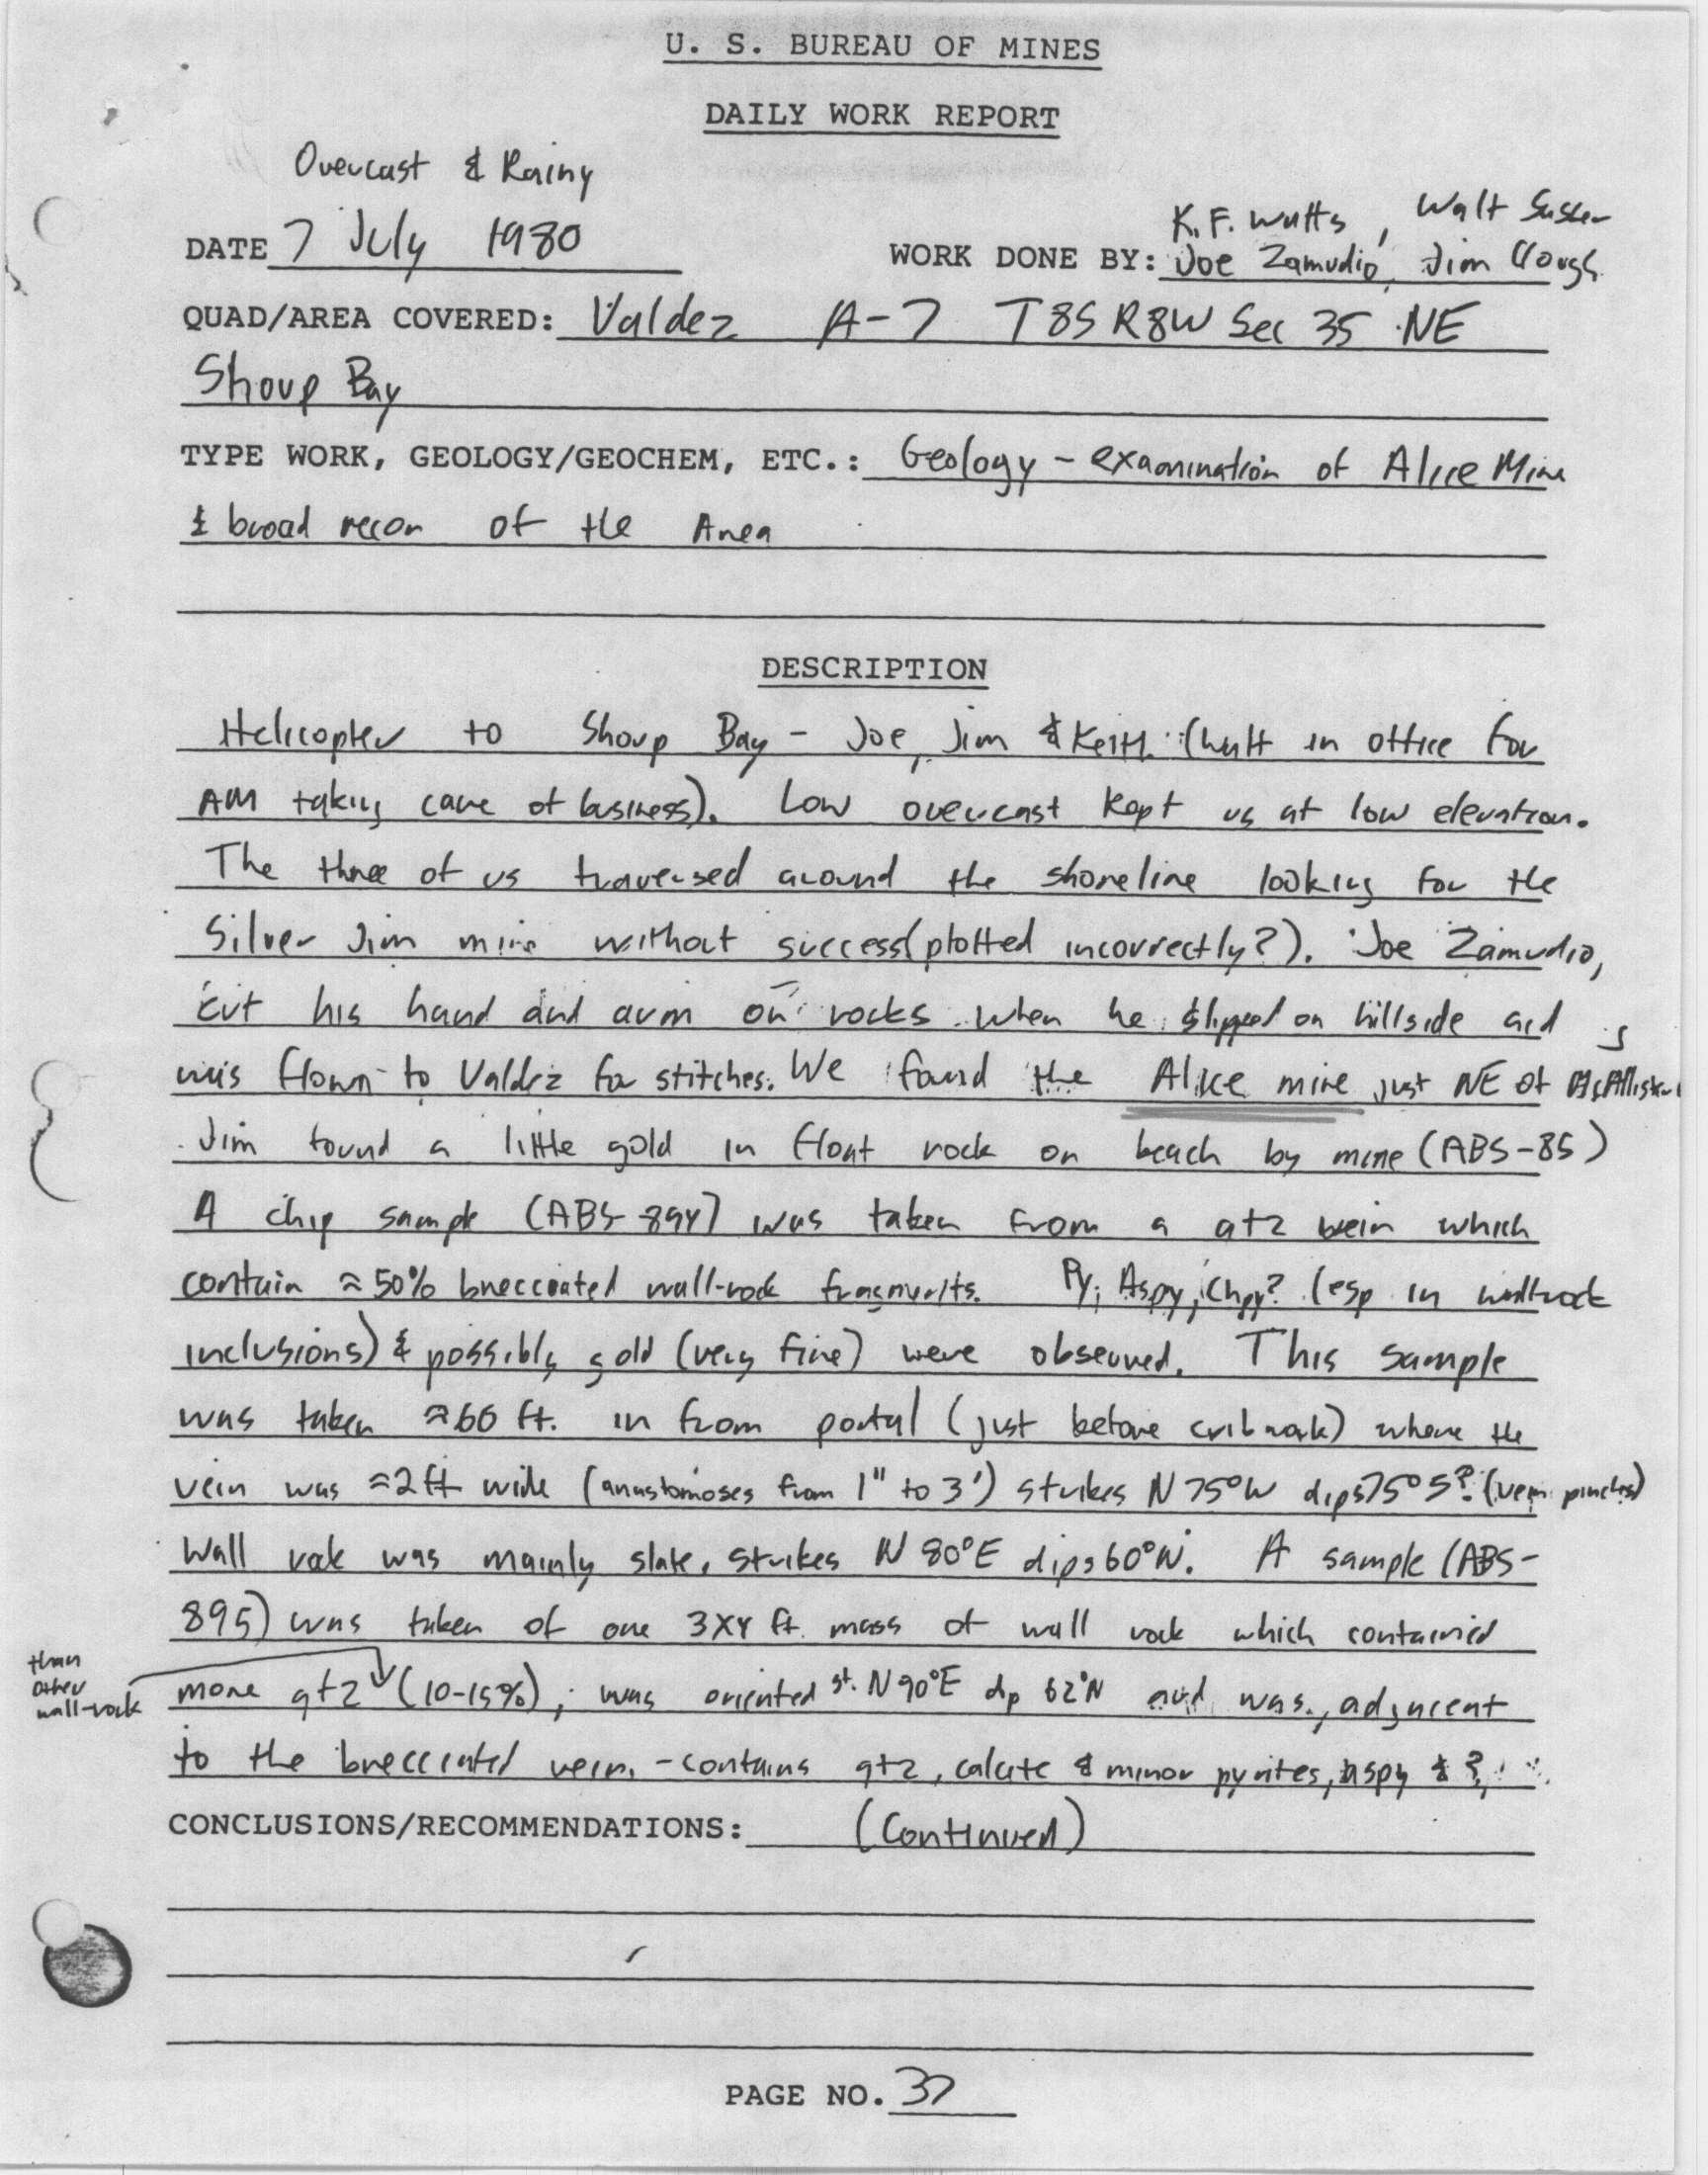 U. S. BUREAU OF MINES
DAILY WORK REPORT
Overcast & Rainy
K.F. Watts, Walt
DATE 7 July 1980 WORK DONE BY: Joe Zamudio, Jim Clough
QUAD/AREA COVERED: Valdez A-7 T8S R8W Sec 35 NE
Shoup Bay
TYPE WORK, GEOLOGY/GEOCHEM, ETC.: Geology - examination of Alice Mine
& broad recon of the Area
DESCRIPTION
Helicopter to Shoup Bay - Joe, Jim & Keith (Walt in office for
AM taking care of business). Low overcast kept us at low elevation.
The three of us traversed around the shoreline looking for the
Silver Jim mine without success (plotted incorrectly?). Joe Zamudio,
cut his hand and arm on rocks when he slipped on hillside and
was flown to Valdez for stitches. We found the Alice mine just NE of McAllister
Jim found a little gold in float rock on beach by mine (ABS-85)
A chip sample (ABS-894) was taken from a qtz vein which
contain ≈ 50% brecciated wall-rock fragments. Py, Aspy, Chpy? (esp in wallrock
inclusions) & possibly gold (very fine) were observed. This sample
was taken ≈60 ft. in from portal (just before cribwork) where the
vein was ≈2 ft wide (anastomoses from 1" to 3') strikes N75°W dips 75°S? (vein pinches)
Wall rock was mainly slate, strikes N 80°E dips 60°N. A sample (ABS-
895) was taken of one 3x4 ft. mass of wall rock which contained
than other wall-rock
more qtz (10-15%); was oriented st. N90°E dip 62°N and was, adjacent
to the brecciated vein. - contains qtz, calcite & minor pyrites, aspy & ?
CONCLUSIONS/RECOMMENDATIONS: (Continued)
PAGE NO. 37